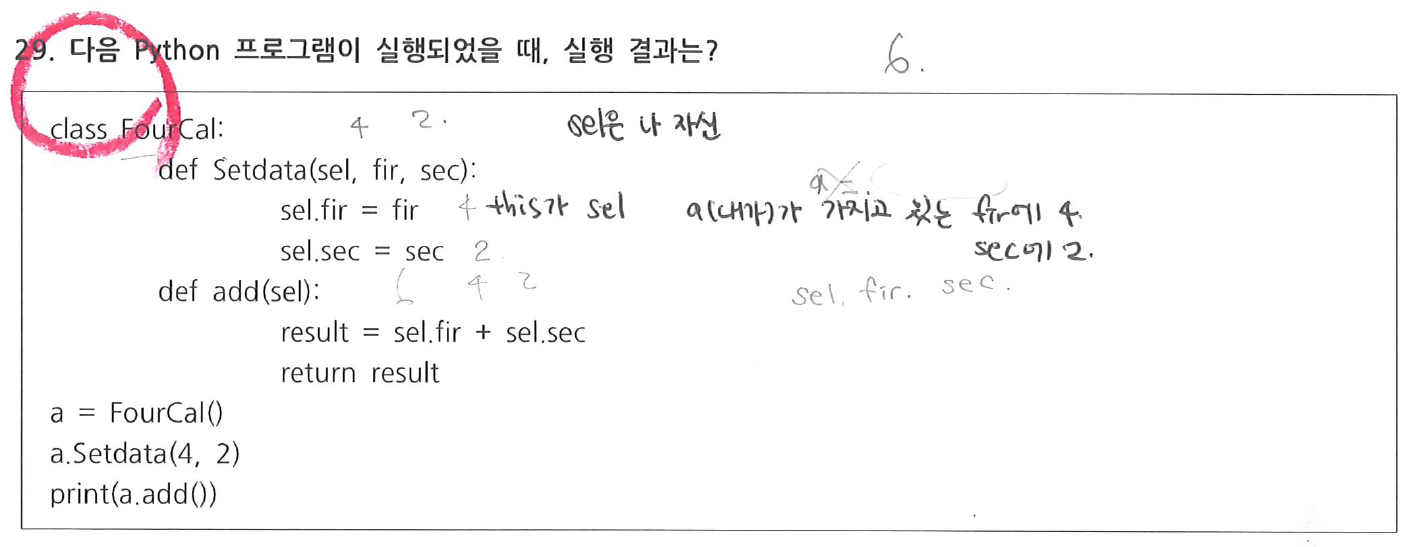 29. 다음 Python 프로그램이 실행되었을 때, 실행 결과는? 6.
class FourCal: 4 2. sel은 나 자신
def Setdata(sel, fir, sec):
a =
sel.fir = fir 4 this가 sel a(내가)가 가지고 있는 fir에 4.
sel.sec = sec 2 sec에 2.
def add(sel): 6 4 2 sel, fir. sec.
result = sel.fir + sel.sec
return result
a = FourCal()
a.Setdata(4, 2)
print(a.add())